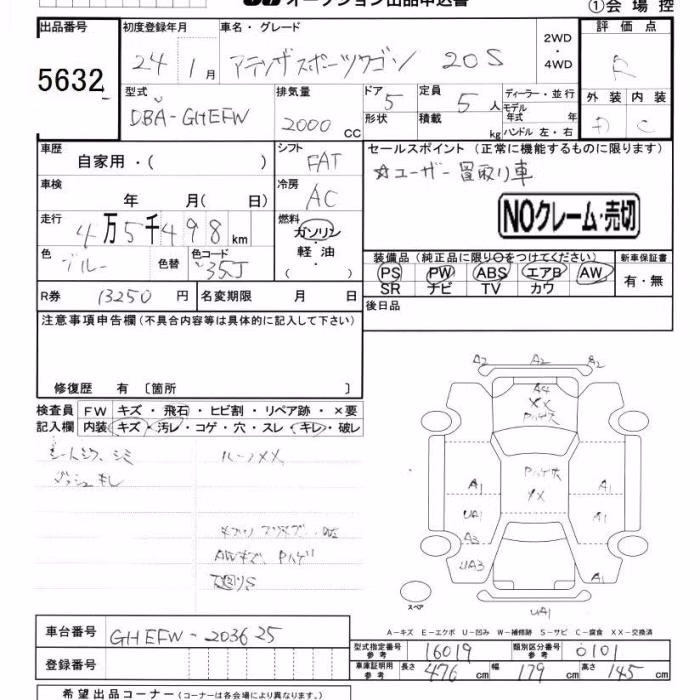 オークション出品申込書
①会場控
出品番号 初度登録年月 車名・グレード 評価点
5632 24 1月 アテンザスポーツワゴン 20S 2WD・4WD R
型式 排気量 ドア 5 定員 5人 ディーラー・並行 外装 内装
DBA-GHEFW 2000cc 形状 積載 kg モデル年式 年 A C
ハンドル 左・右
車歴 シフト セールスポイント (正常に機能するものに限ります)
自家用・( ) FAT ☆ユーザー買取り車
車検 冷房
年 月( 日) AC NOクレーム・売切
走行 燃料
4万5千498km ガソリン・軽油・( )
色 ブルー 色替 色コード 35J
装備品 (純正品に限り○をつけてください) 新車保証書
PS PW ABS エアB AW 有・無
SR ナビ TV カワ
R券 13250円 名変期限 月 日 後日品
注意事項申告欄 (不具合内容等は具体的に記入して下さい)
修復歴 有 〔箇所 〕
検査員 FW キズ・飛石・ヒビ割・リペア跡・×要
記入欄 内装 キズ・汚レ・コゲ・穴・スレ・キレ・破レ
シートシワ、シミ ルーフXX
ダッシュキレ
AWキズ、Pハゲ
下廻りS
A2 A2 A2
A4
XX
Pハゲ大
Pハゲ大
XX
A1 A1
UA1 A1
A3
UA3 A1
スペア UA1
A-キズ E-エクボ U-凹み W-補修跡 S-サビ C-腐食 XX-交換済
車台番号 GHEFW-203625
型式指定番号 参考 16019 類別区分番号 参考 0101
登録番号 車庫証明用 参考 長さ 476cm 幅 179cm 高さ 145cm
希望出品コーナー (コーナーは各会場により異なります。)